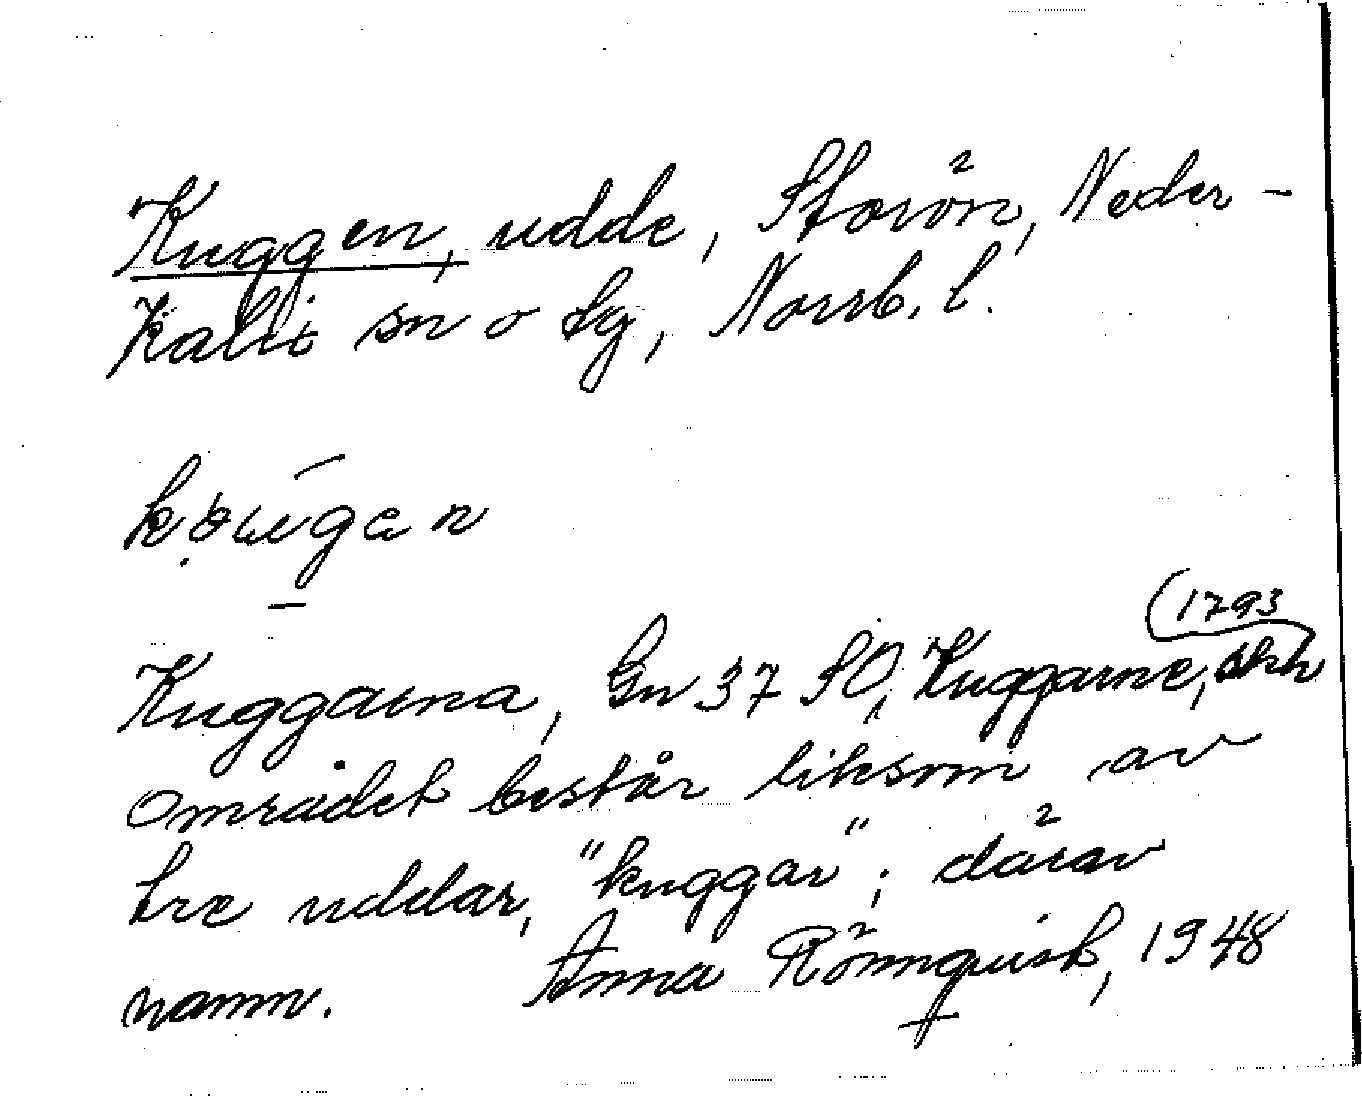 Kuggen, udde, Storön, Neder-
Kalix sn o tg, Norrb. l.
(1793
Kuggarna, Gn 37 SO, Kuggarne,
området består liksom av
tre uddar, "kuggar"; därav
namn. Anna Rönnquist, 1948